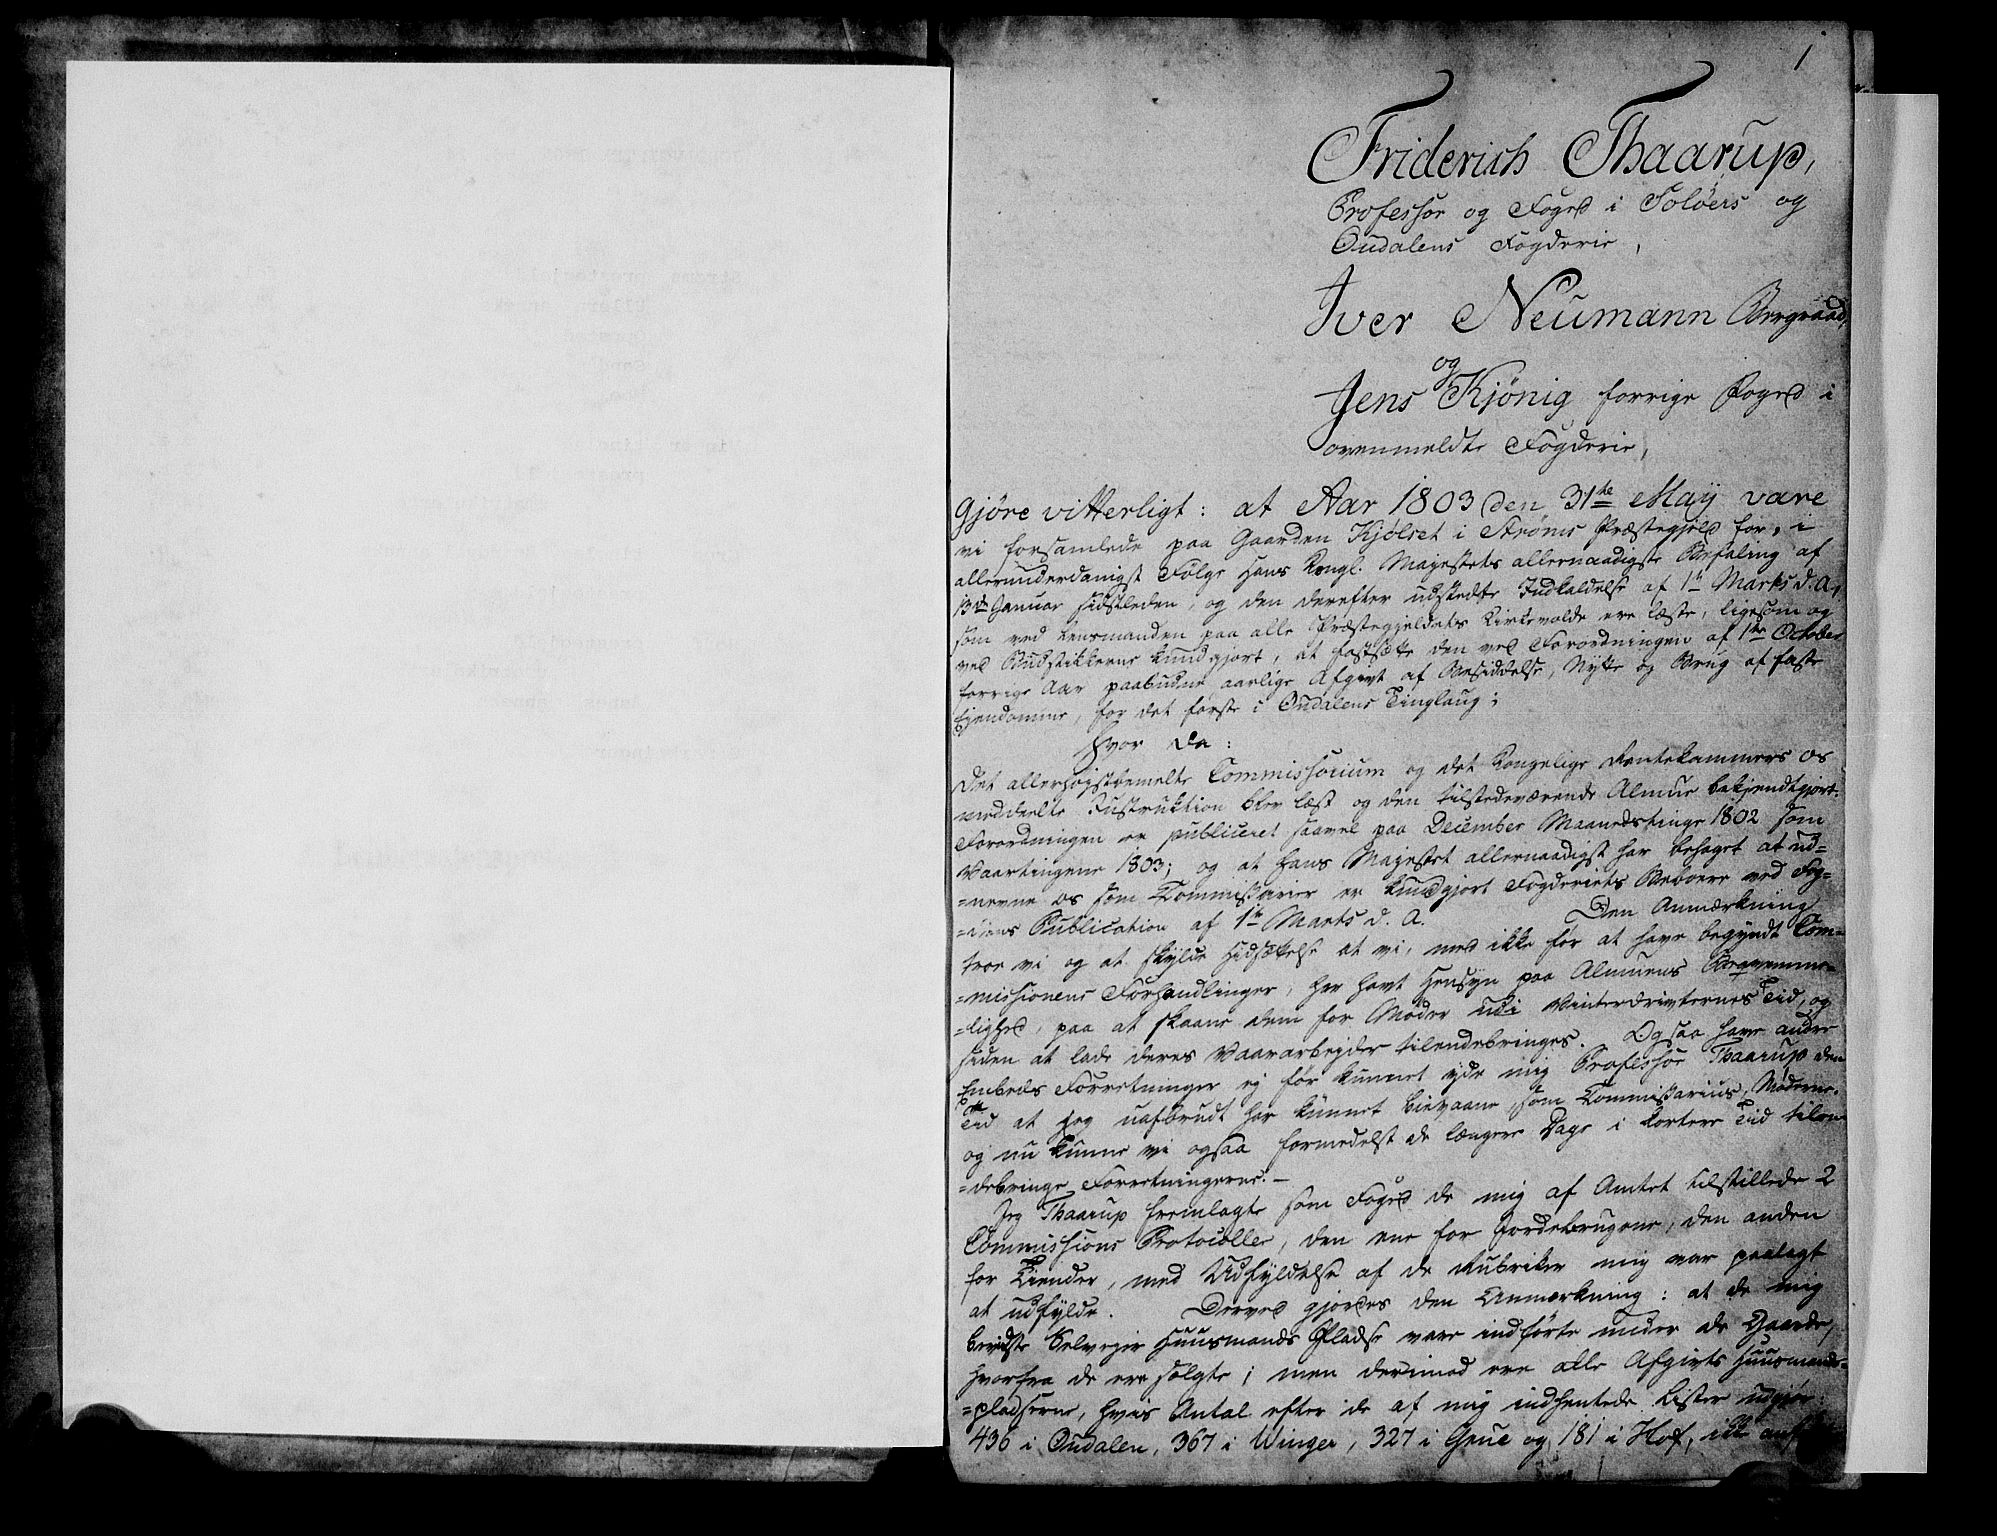 1
Friderich Thaarup,
Professor og Foged i Soløers og
Oudalens Fogderie,
Iver Neumann Bergraad,
og
Jens Kjönig forrige Foged i
ovenmeldte Fogderie,
Gjöre vitterligt: at Aar 1803 den 31te Maij vare
vi forsamlede paa Gaarden Kjølset i Strøms Præstegjeld for, i
allerunderdanigst Følge Hans Kongl. Majestets allernaadigste Befaling af
13de Januar sidstleden, og den derefter udstedte Indkaldelse af 1te Marts d. A,
som ved Lensmanden paa alle Præstegjeldets Kirkevolde ere læste, ligesom og
ved Budstikkerne kundgjort, at fastsætte den ved Forordningen af 1te October
forrige Aar paabudne aarlige Afgivt af Besiddelse, Nytte og Brug af faste
Ejendomme, for det første i Oudalens Tinglaug;
Hvor da:
Det allerhøjstbemelte Commissorium og det Kongelige Rentekammers os
meddeelte Instruktion blev læst og den tilstedeværende Almue bekjendtgjort.
Forordningen er publiceret saavel paa December Maanedstinge 1802 som
Vaartingene 1803; og at Hans Majestet allernaadigst har behaget at ud=
=nevne os som Commissarier er kundgjort Fogderiets Beboere ved Fog=
=dens Publication af 1te Marts d. A. Den Anmærkning
troe vi og at skylde hidsættelse at vi, med ikke før at have begyndt Com=
=missionens Forhandlinger, har havt Hensyn paa Almuens Beqvemme=
=lighed, paa at skaane dem for Møder udi Vinterdrivternes Tid, og
siden at lade deres Vaararbejder tilendebringes. Ogsaa have andre
Embeds Forretninger ej før kunnet yde mig Professor Thaarup den
Tid at jeg uafbrudt har kunnet bievaane, som Commissarius, Møderne.
og nu kunne vi ogsaa formedelst de længere Dage i kortere Tid tilen=
=debringe Forretningerne. —
Jeg Thaarup fremlagte som Foged de mig af Amtet tilstillede 2
Commissions Protocoller, den ene for Jordebrugene, den anden
for Tiender, med Udfyldelse af de Rubriker mig var paalagt
at udfylde. Derved gjordes den Anmerkning: at de mig
bevidste Selveyer Huusmands Pladse vare indførte under de Gaarde,
hvorfra de ere solgte; men derimod ere alle Afgivts Huusmands=
=pladserne, hvis Antal efter de af mig indhentede Lister udgjør:
436 i Oudalen, 367 i Winger, 327 i Grue og 181 i Hof, ikke